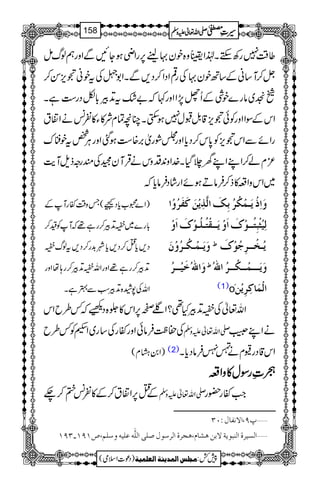 سیرتِ مصطفیٰ صلی اللہ تعالیٰ علیہ وسلم 158
طاقت نہیں رکھ سکتے۔ لہٰذا یقیناً وہ خون بہا لینے پر راضی ہو جائیں گے اور ہم لوگ مل
جل کر آسانی کے ساتھ خون بہا کی رقم ادا کر دیں گے۔ ابوجہل کی یہ خونی تجویز سن کر
شیخ نجدی مارے خوشی کے اُچھل پڑا اور کہا کہ بے شک یہ تدبیر بالکل درست ہے۔
اس کے سوا اور کوئی تجویز قابل قبول نہیں ہو سکتی۔ چنانچہ تمام شرکاء کانفرنس نے اتفاق
رائے سے اس تجویز کو پاس کر دیا اور مجلس شوریٰ برخاست ہو گئی اور ہر شخص یہ خوفناک
عزم لے کر اپنے اپنے گھر چلا گیا۔ خداوند قدوس نے قرآن مجید کی مندرجہ ذیل آیت
میں اس واقعہ کا ذکر فرماتے ہوئے ارشاد فرمایا کہ
وَاِذْ یَمْكُرُ بِكَ الَّذِیْنَ كَفَرُوْا
لِیُثْبِتُوْكَ اَوْ یَقْتُلُوْكَ اَوْ
یُخْرِجُوْكَ ؕ وَ یَمْكُرُوْنَ
وَ یَمْكُرُ اللّٰهُ ؕ وَ اللّٰهُ خَیْرُ
الْمٰكِرِیْنَ o (1)
(اے محبوب یاد کیجیے) جس وقت کفار آپ کے
بارے میں خفیہ تدبیر کر رہے تھے کہ آپ کو قید کر
دیں یا قتل کر دیں یا شہر بدر کر دیں یہ لوگ خفیہ
تدبیر کر رہے تھے اور اللہ خفیہ تدبیر کر رہا تھا اور
اللہ کی پوشیدہ تدبیر سب سے بہتر ہے۔
اللہ تعالیٰ کی خفیہ تدبیر کیا تھی؟ اگلے صفحہ پر اس کا جلوہ دیکھیے کہ کس طرح اس
نے اپنے حبیب صلی اللہ تعالیٰ علیہ وسلم کی حفاظت فرمائی اور کفار کی ساری اسکیم کو کس طرح
اس قادر قیوم نے تہس نہس فرما دیا۔ (2) (ابن ہشام)
ہجرتِ رسول کا واقعہ
جب کفار حضور صلی اللہ تعالیٰ علیہ وسلم کے قتل پر اتفاق کر کے کانفرنس ختم کر چکے
......پ۹،الانفال : ۳۰
......السیرة النبویة لابن هشام،هجرة الرسول صلی اللہ علیه وسلم،ص۱۹۱۔۱۹۳
پیش کش: مجلس المدینة العلمیة (دعوتِ اسلامی)